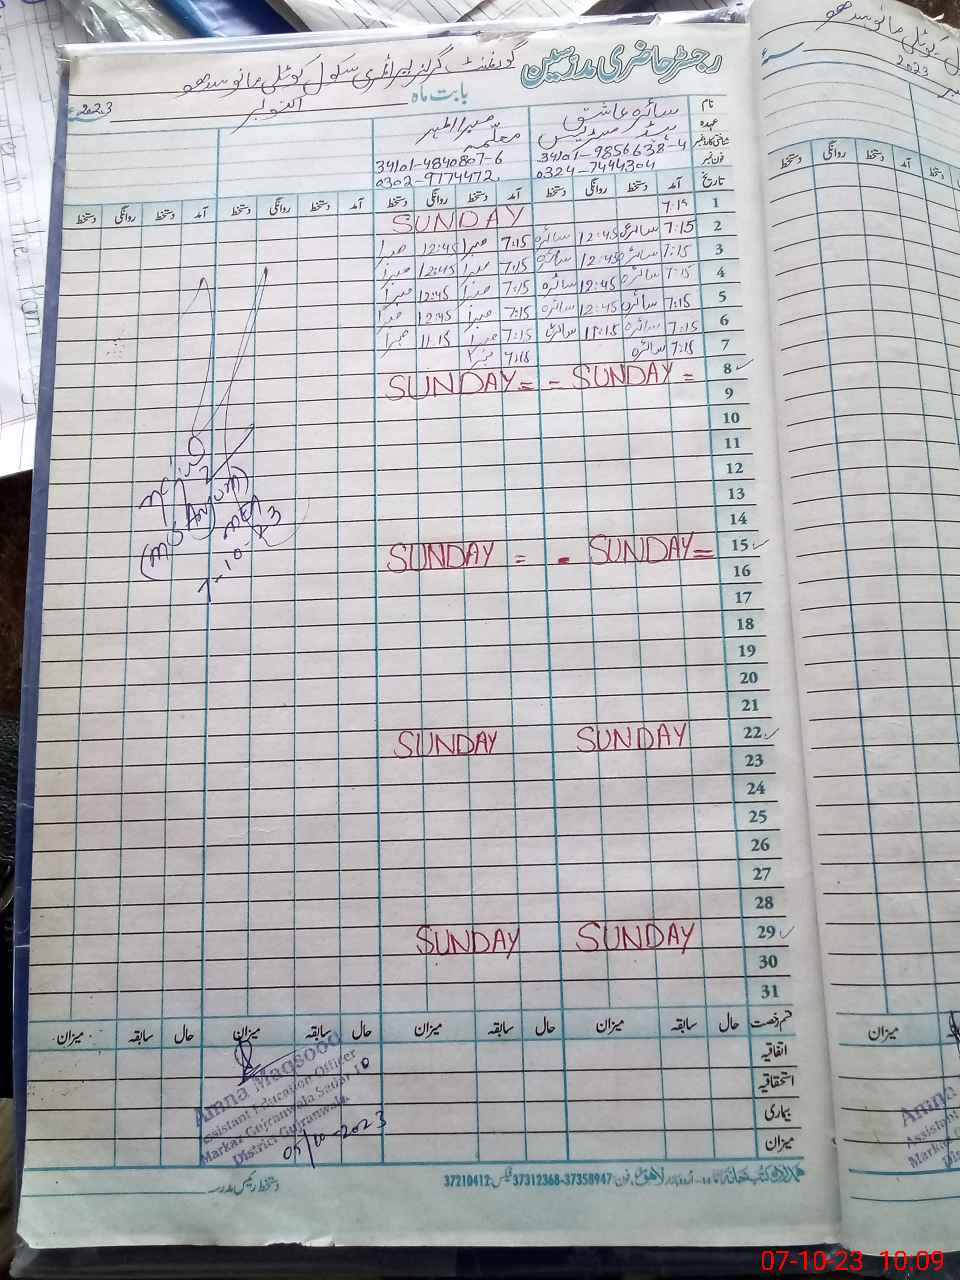 رجسٹر حاضری مدرسین گورنمنٹ گرلز پرائمری سکول کوٹلی مانو سدھو
بابت ماہ اکتوبر 2023ء
نام سائرہ عاشق
عہدہ ہیڈ مسٹریس معلّمہ
شناختی کارڈ نمبر 34101-9856638-4 34101-4840807-6
فون نمبر 0324-7444304 0302-9174472
تاریخ آمد دستخط روانگی دستخط آمد دستخط روانگی دستخط آمد دستخط روانگی دستخط آمد دستخط روانگی دستخط
1 7:15 SUNDAY
2 7:15 سائرہ 12:45 سائرہ 7:15 12:45
3 7:15 سائرہ 12:45 سائرہ 7:15 12:45
4 7:15 سائرہ 12:45 سائرہ 7:15 12:45
5 7:15 سائرہ 12:45 سائرہ 7:15 12:45
6 7:15 سائرہ 11:15 سائرہ 7:15 11:15
7 7:15 سائرہ 7:15
8 SUNDAY = - SUNDAY =
9
10
11
12
13
14
15 SUNDAY = - SUNDAY =
16
17
18
19
20
21
22 SUNDAY SUNDAY
23
24
25
26
27
28
29 SUNDAY SUNDAY
30
31
MEA
7-10-23
قسم رخصت حال سابقہ میزان حال سابقہ میزان حال سابقہ میزان حال سابقہ میزان
اتفاقیہ
استحقاقیہ
بیماری
میزان
Amna Maqsood
Assistant Education Officer
Markaz Gujranwala Sadar 10
District Gujranwala.
05/10-2023
دستخط رئیس مدرسہ
اردو بازار لاہور فون: 37358947-37312368 فیکس: 37210412
2023
میزان
07-10-23 10:09